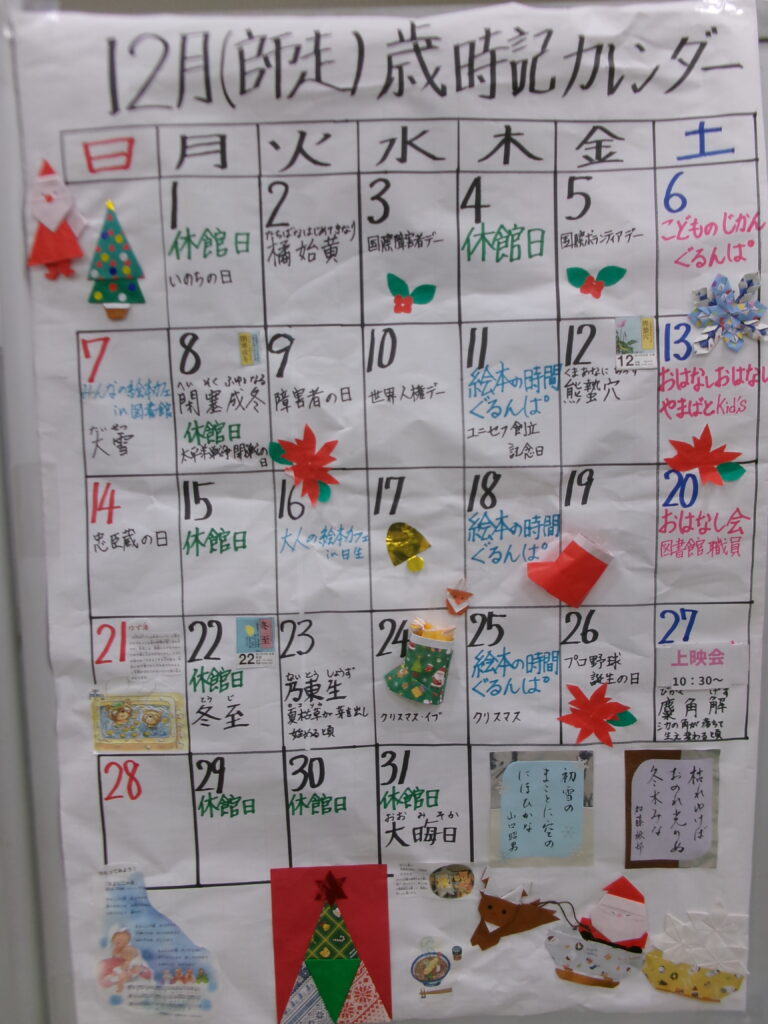 12月(師走)歳時記カレンダー
日 月 火 水 木 金 土
1
休館日
いのちの日
2
たちばなはじめてきなり
橘始黄
3
国際障害者デー
4
休館日
5
国際ボランティアデー
6
こどものじかん
ぐるんぱ
7
みんなの絵本カフェ
in 図書館
たいせつ
大雪
8
閉塞成冬
休館日
太平洋戦争開戦の日
9
障害者の日
10
世界人権デー
11
絵本の時間
ぐるんぱ
ユニセフ創立
記念日
12
12
熊蟄穴
13
おはなしおはなし
やまばとKid's
14
忠臣蔵の日
15
休館日
16
大人の絵本カフェ
in 日生
17
18
絵本の時間
ぐるんぱ
19
20
おはなし会
図書館職員
21
ゆず湯
22
冬至
22
休館日
とうじ
冬至
23
ないとうしょうず
乃東生
夏枯草が芽を出し
始める頃
24
クリスマス・イブ
25
絵本の時間
ぐるんぱ
クリスマス
26
プロ野球
誕生の日
27
上映会
10:30〜
麋角解
シカの角が落ちて
生え変わる頃
28
29
休館日
30
休館日
31
休館日
おおみそか
大晦日
初雪の
まことに空の
にほひかな
枯れゆけば
おのれ光りぬ
冬木みな
加藤楸邨